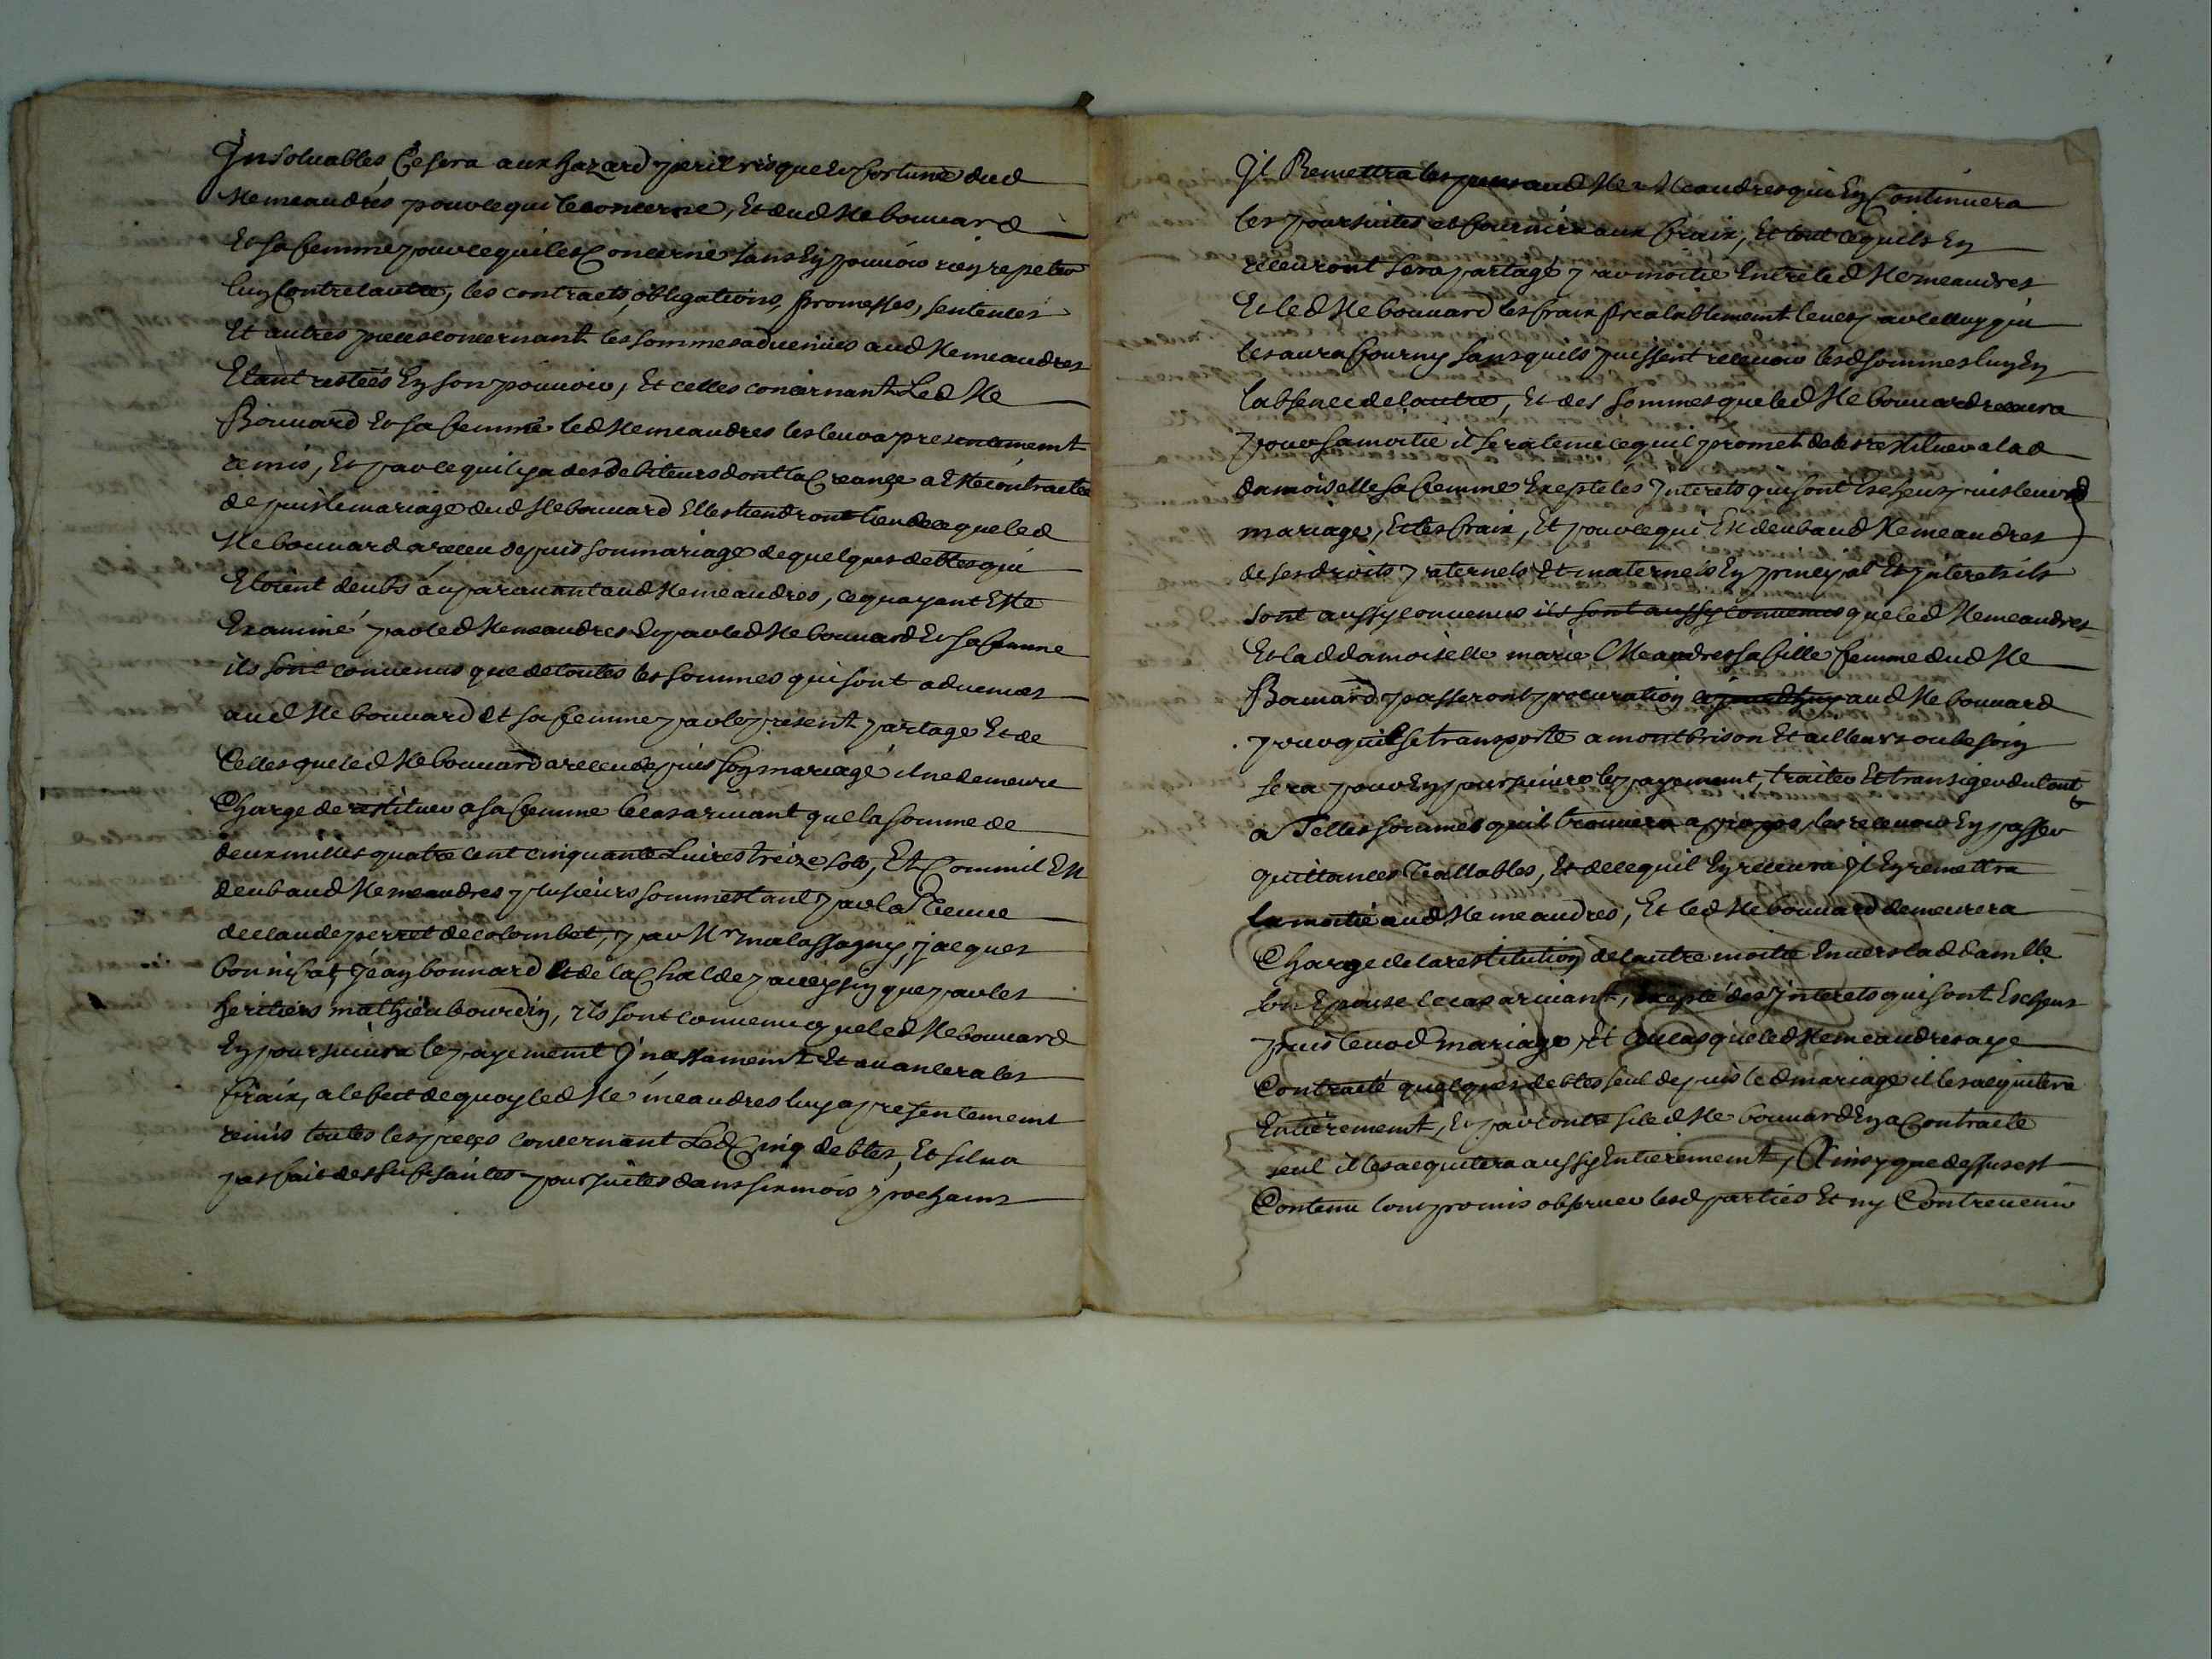 Insoluables Ce sera aux hazard peril risque et fortune dud
Me meandres pour ce qui le concerne, Et dud Me bouuard
Et sa femme pour ce qui les Concerne sans En pouuoir rien repeter
lun Contre lautre, les contracts, obligations, promesses, sentences
Et autres pieces concernant les sommes aduenues aud Me meandres
Etant restées En son pouuoir, Et celles concernant Led Me
Bouuard Et sa femme led Me meandres les leur a presentement
remis, Et par ce quil y a des debiteurs dont la Creance a Esté contractée
depuis le mariage dud Me bouuard Elles tiendront lieu de ce que led
Me bouuard a receu depuis son mariage de quelques debtes qui
Etoient deubs auparauant aud Me meandres, ce quayant Esté
Examiné par led Me meandres Et par led Me bouuard Et sa femme
ils sont conuenus que de toutes les sommes qui sont aduenues
aud Me bouuard Et sa femme par le present partage Et de
Celles que led Me bouuard a receu depuis son mariage il ne demeure
Charge de restituer a sa femme le cas ariuant que la somme de
deux milles quatre cent cinquante Liures treize sols, Et Comme il Est
deub aud Me meandres plusieurs sommes tant par la Veuue
de claude perret de colombet, par Mr malassagny, jacques
bonnisat, jean bonnard Et de la Chal de paueysin que par les
heritiers mathieu bourdin, ils sont conuenu que led Me bouuard
En poursuiura le payement Inessamment Et auancera les
fraix, a lefect de quoy led Me meandres luy a presentement
remis toutes les pieces concernant Led Cinq debtes, Et sil na
pas fait des sufisantes poursuites dans six mois prochains
Il Remettra les pieces aud Me Meandres qui En Continuera
les poursuites et fournira aux fraix, Et tout ce quils En
receuront sera partagé par moitie Entre led Me meandres
Et led Me bouuard les fraix prealablement leues par celluy qui
les aura fourny sans quils puissent receuoir lesd sommes lun En
labsence de lautre, Et des sommes que led Me bouuard receura
pour sa moitie il sera tenu ce quil promet de les restituer a lad
damoiselle sa femme Excepte les Interets qui sont Escheus puis leurd
mariage, Et les fraix, Et pour ce qui Est deub aud Me meandres
de ses droits paternels Et maternels En principal Et Interets ils
sont aussy conuenus ils sont aussy conuenus que led Me meandres
Et lad damoiselle marie Meandres sa fille femme dud Me
Bouuard passeront procuration aud Me bouuard
pour quil se transporte a montbrison Et ailleurs ou besoin
sera pour En poursuiure le payement, traiter Et transiger du tout
a Telles sommes quil trouuera a propos, les receuoir En passer
quittances Vallables, Et de ce quil En receura Il En remettra
la moitié aud Me meandres, Et led Me bouuard demeurera
Charge de la restitution de lautre moitie Enuers lad damlle
son Epouse le cas ariuant, Excepté des Interets qui sont Escheus
puis leurd mariage, Et Au cas que led Me meandres aye
Contracté quelques debtes seul depuis led mariage il les acquitera
Entierement, Et par contre si led Me bouuard En a Contracte
seul il les acquitera aussy Entierement, Ainsy que dessus est
Contenu lont promis obseruer lesd parties Et ny Contreuenir